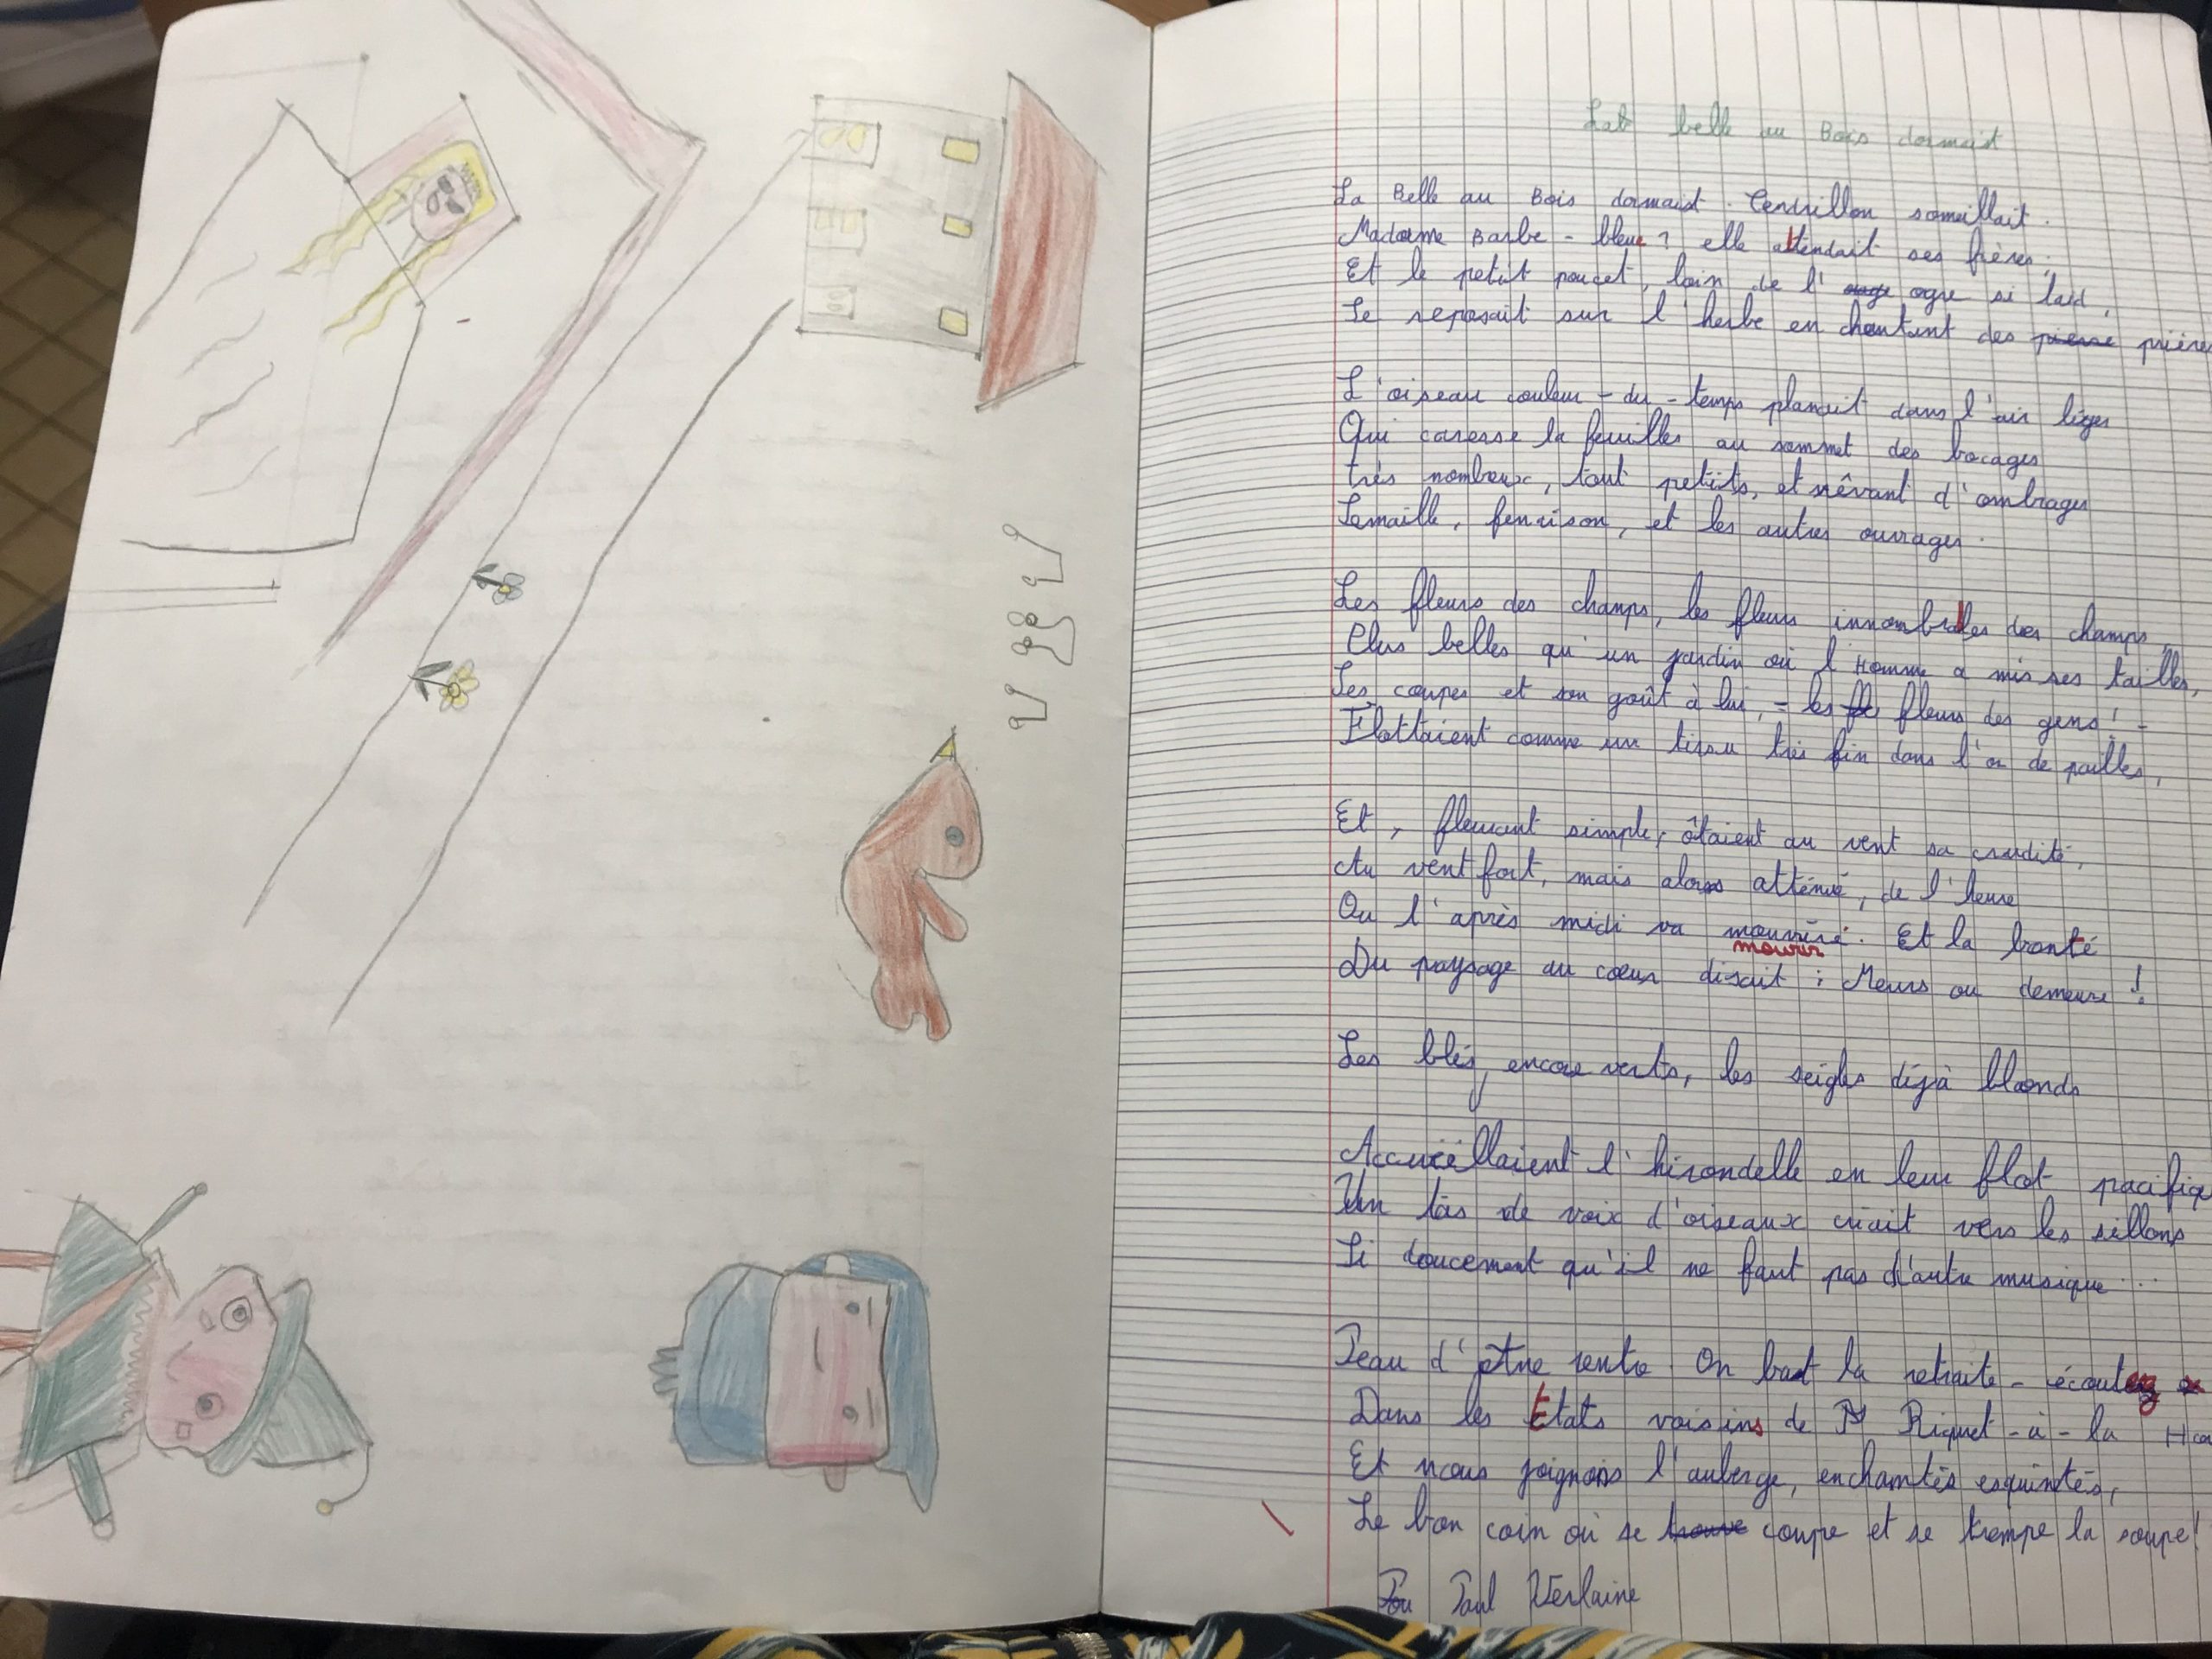 La belle au Bois dormait
La Belle au Bois dormait. Cendrillon someillait.
Madame Barbe - bleue ? elle attendait ses frères ;
Et le petit poucet, loin de l' ogre si laid,
Se reposait sur l'herbe en chantant des pierre prière
L'oiseau couleur - du - temps planait dans l'air léger
Qui caresse la feuilles au sommet des bocages
très nombeux, tout petits, et rêvant d'ombrages
Semaille, fenaison, et les autres ouvrages.
Les fleurs des champs, les fleurs innombrables des champs,
Plus belles qu'un jardin où l'Homme a mis ses tailles,
Ses coupes et son goût à lui, - les fleurs des gens ! -
Flottaient comme un tissu très fin dans l'or de pailles,
Et, fleurant simple, ôtaient au vent sa crudité,
Au vent fort, mais alors atténué, de l'heure
Ou l'après midi va mourire. Et la bonté
mourir
Du paysage au cœur disait : Meurs ou demeure !
Les blés encore verts, les seigles déjà blonds
Accuëillaient l'hirondelle en leur flot pacifiq
Un tas de voix d'oiseaux criait vers les sillons
Si doucement qu'il ne faut pas d'autre musique ...
Peau d'âne rentre. On bat la retraite - écoutez
Dans les États voisins de Riquet - à - la Hou
Et nous joignons l'auberge, enchantés esquintés,
Le bon coin où se trouve coupe et se trempe la soupe !
Paul Verlaine